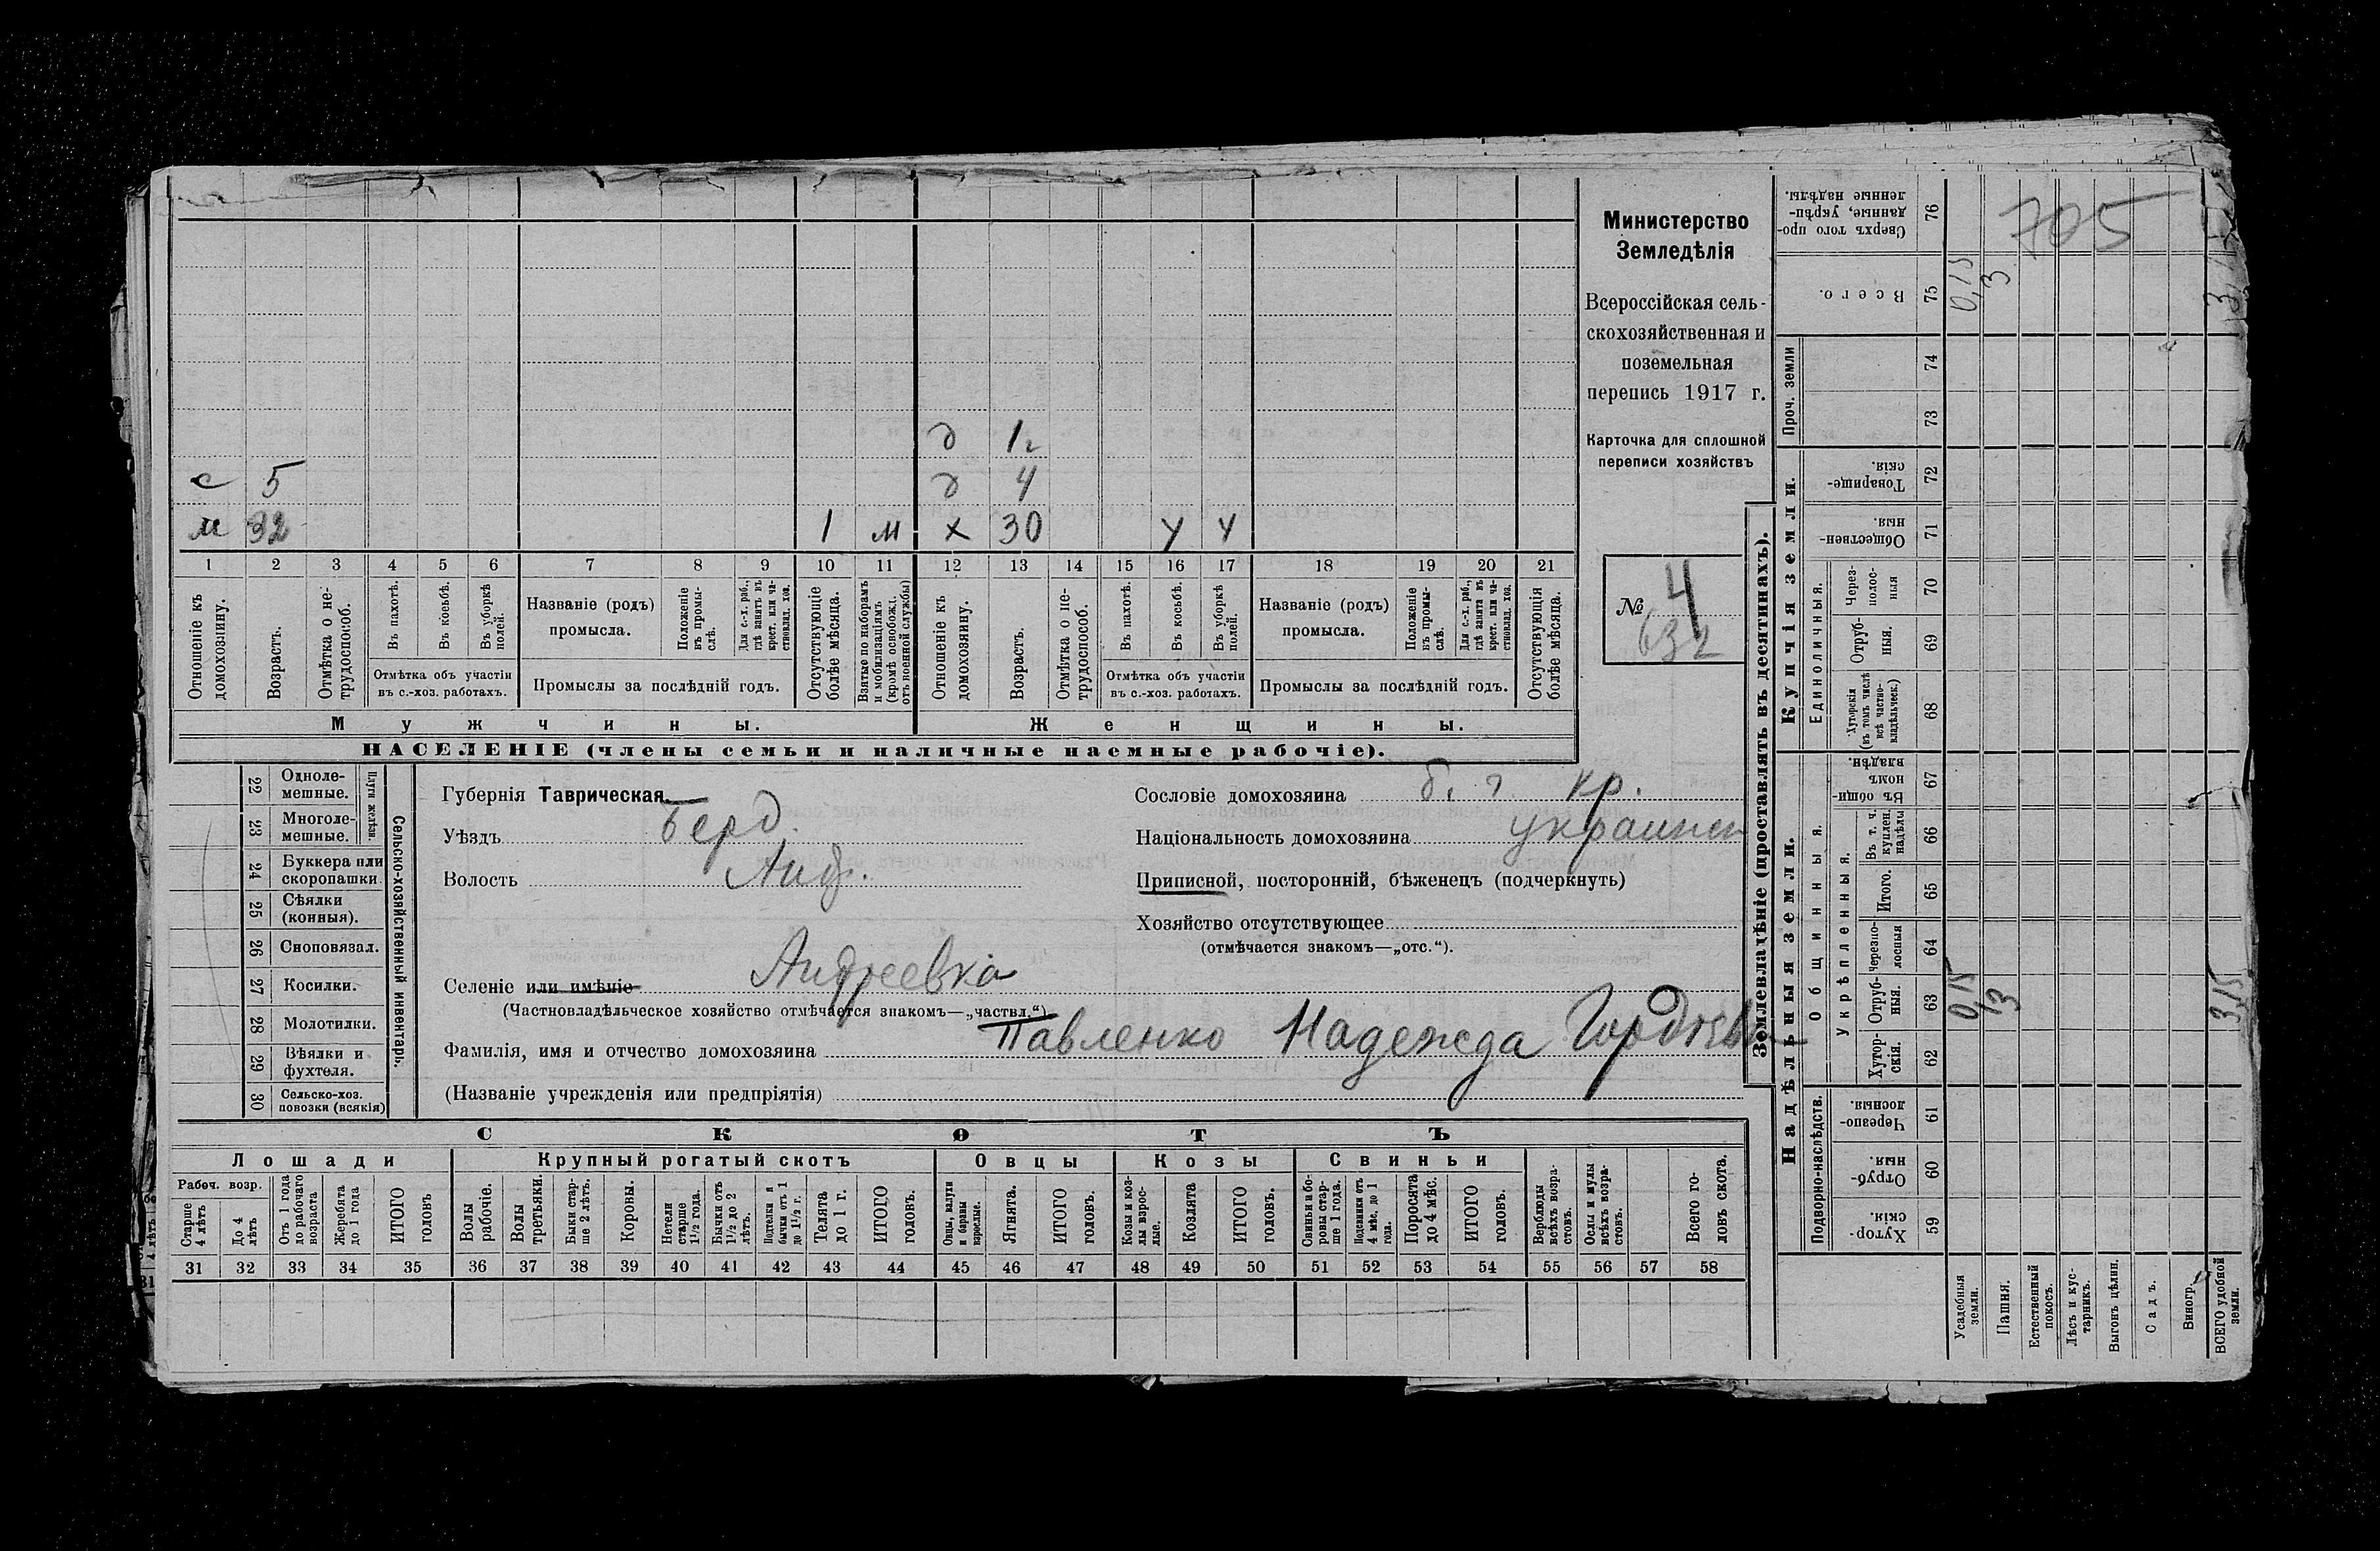 Министерство
Земледѣлія
Всероссійская сель-
скохозяйственная и
поземельная
перепись 1917 г.
Карточка для сплошной
переписи хозяйствъ
№ 4
632
705
д 1 г
с 5 д 4
м 32 1 м х 30 У У
1 2 3 4 5 6 7 8 9 10 11 12 13 14 15 16 17 18 19 20 21
Отношеніе къ домохозяину.
Возрастъ.
Отмѣтка о не-трудоспособ.
Въ пахотѣ.
Въ косьбѣ.
Въ уборкѣ полей.
Отмѣтка объ участіи
въ с.-хоз. работахъ.
Названіе (родъ)
промысла.
Положеніе въ промы-слѣ.
Для с.-х. раб., гдѣ занятъ въ крест. или ча-стновлад. хоз.
Промыслы за послѣдній годъ.
Отсутствующіе болѣе мѣсяца.
Взятые по наборамъ и мобилизаціямъ (кромѣ освобожд. отъ военной службы)
Отношеніе къ домохозяину.
Возрастъ.
Отмѣтка о не-трудоспособ.
Въ пахотѣ.
Въ косьбѣ.
Въ уборкѣ полей.
Отмѣтка объ участіи
въ с.-хоз. работахъ.
Названіе (родъ)
промысла.
Положеніе въ промы-слѣ.
Для с.-х. раб., гдѣ занята въ крест. или ча-стновлад. хоз.
Промыслы за послѣдній годъ.
Отсутствующія болѣе мѣсяца.
Мужчины.
Женщины.
НАСЕЛЕНІЕ (члены семьи и наличные наемные рабочіе).
Сельско-хозяйственный инвентарь.
Плуги желѣзн.
22 Одноле-мешные.
23 Многоле-мешные.
24 Буккера или скоропашки.
25 Сѣялки (конныя).
26 Сноповязал.
27 Косилки.
28 Молотилки.
29 Вѣялки и фухтеля.
30 Сельско-хоз. повозки (всякія)
Губернія Таврическая.
Уѣздъ Берд.
Волость Анд.
Селеніе или имѣніе Андреевка
(Частновладѣльческое хозяйство отмѣчается знакомъ—„частвл.“)
Фамилія, имя и отчество домохозяина Павленко Надежда
(Названіе учрежденія или предпріятія)
Сословіе домохозяина б. г. кр.
Національность домохозяина украинец
Приписной, посторонній, бѣженецъ (подчеркнуть)
Хозяйство отсутствующее
(отмѣчается знакомъ—„отс.“).
СКОТЪ
Лошади
Крупный рогатый скотъ
Овцы
Козы
Свиньи
Рабоч. возр.
Старше 4 лѣтъ
До 4 лѣтъ
Отъ 1 года до рабочаго возраста
Жеребята до 1 года
ИТОГО головъ
Волы рабочіе.
Волы третьяки.
Быки стар-ше 2 лѣтъ.
Коровы.
Нетели старше 1½ года.
Бычки отъ 1½ до 2 лѣтъ.
Подтелки и бычки отъ 1 до 1½ г.
Телята до 1 г.
ИТОГО головъ.
Овцы, валухи и бараны взрослые.
Ягнята.
ИТОГО головъ.
Козы и коз-лы взрос-лые.
Козлята
ИТОГО головъ.
Свиньи и бо-ровы стар-ше 1 года.
Подсвинки отъ 4 мѣс. до 1 года.
Поросята до 4 мѣс.
ИТОГО головъ.
Верблюды всѣхъ возра-стовъ.
Ослы и мулы всѣхъ возра-стовъ.
Всего го-ловъ скота.
31 32 33 34 35 36 37 38 39 40 41 42 43 44 45 46 47 48 49 50 51 52 53 54 55 56 57 58
Землевладѣніе (проставлять въ десятинахъ).
Надѣльныя земли.
Купчія земли.
Проч. земли
Подворно-наслѣдств.
Общинныя.
Укрѣпленныя.
Единоличныя.
Сверхъ того про-данные, укрѣп-ленные надѣлы. 76
Всего. 75 0,15 3 3,15
74
73
Товарище-скія. 72
Обществен-ныя. 71
Через-полос-ныя 70
Отруб-ныя. 69
Хуторскія (въ томъ числѣ всѣ частно-владѣльческ.) 68
Въ общи-номъ владѣн. 67
Въ т. ч. куплен. надѣлы 66
Итого. 65
Черезпо-лосныя 64
Отруб-ныя. 63 0,15 3 3,15
Хутор-скія. 62
Черезпо-лосныя. 61
Отруб-ныя. 60
Хутор-скія. 59
Усадебныя земли.
Пашня.
Естественный покосъ.
Лѣсъ и кус-тарникъ.
Выгонъ цѣлин.
Садъ.
Виногр.
ВСЕГО удобной земли.